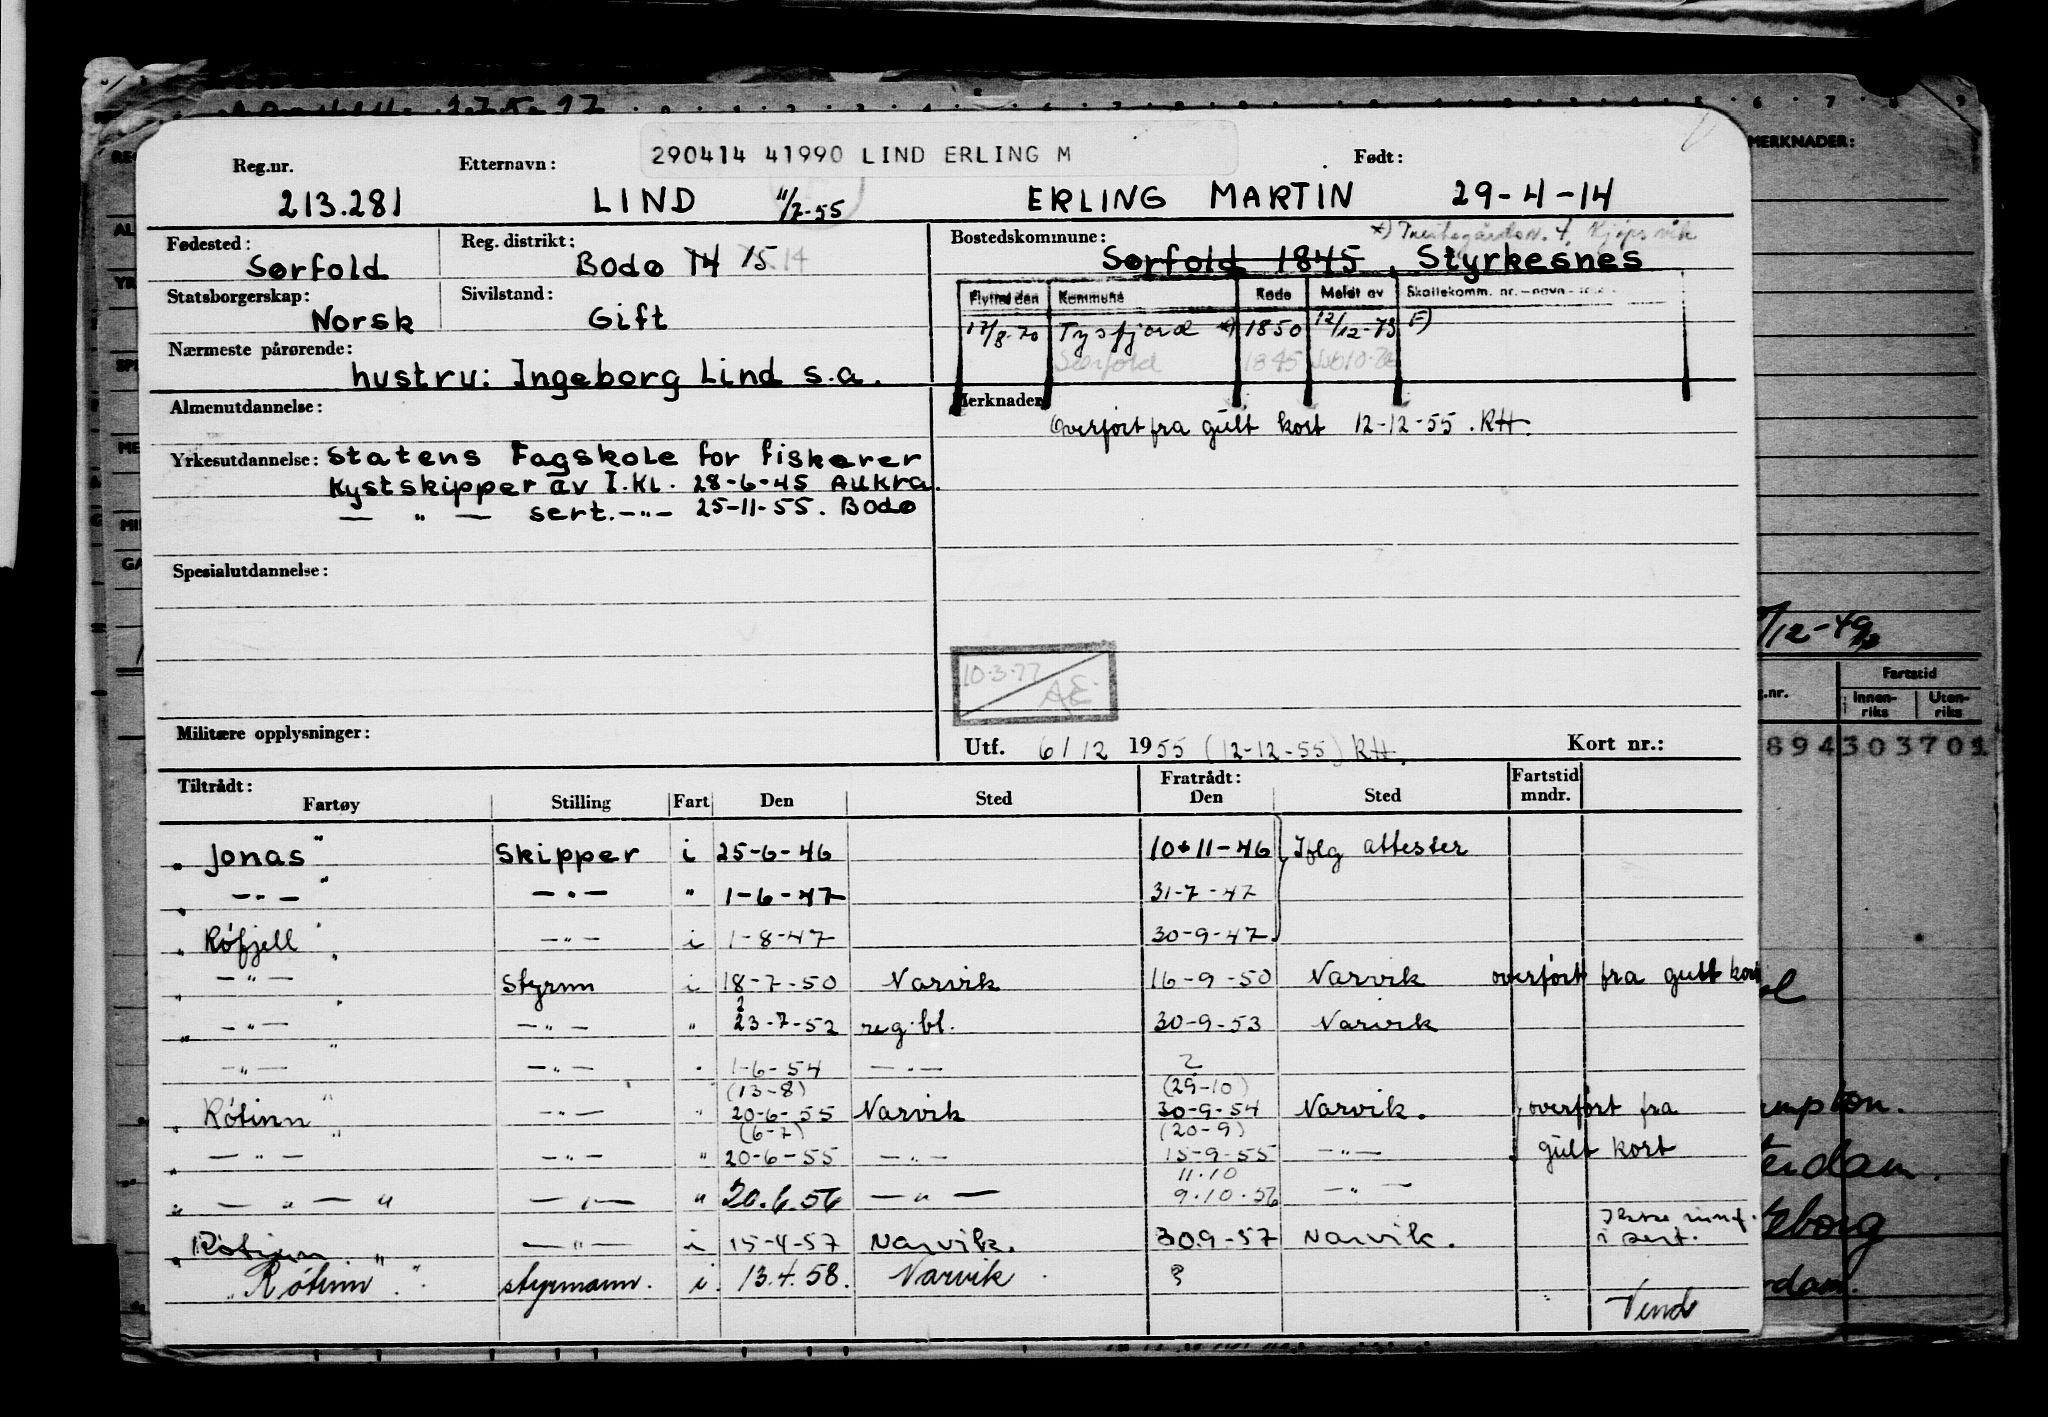 290414 41990 LIND ERLING M
Reg.nr. Etternavn: Født:
213.281 LIND 11/7-55 ERLING MARTIN 29-4-14
Fødested: Reg. distrikt: Bostedskommune: *) 4, Kjøpsvik
Sørfold Bodø 14 15 14 Sørfold 1845, Styrkesnes
Statsborgerskap: Sivilstand: Flyttet den Kommune Kode Meldt av Skattekomm. nr. - navn
Norsk Gift 17/8-70 Tysfjord *) 1850 12/12-73 F)
Nærmeste pårørende: Sørfold 1845
hustru: Ingeborg Lind s.a.
Almenutdannelse: Merknader
Overført fra gult kort 12-12-55. RH.
Yrkesutdannelse: Statens Fagskole for fiskerer
Kystskipper av I. Kl. 28-6-45 Aukra.
— " — sert. -"- 25-11-55. Bodø
Spesialutdannelse:
10-3-77 AE
Militære opplysninger: Utf. 6/12 1955 (12-12-55) RH. Kort nr.:
Tiltrådt: Fratrådt: Fartstid
Fartøy Stilling Fart Den Sted Den Sted mndr.
"Jonas" Skipper i 25-6-46 10-11-46 Iflg attester
" -"- " -"- " 1-6-47 31-7-47
"Røfjell" -"- i 1-8-47 30-9-47
" -"- " Styrm i 18-7-50 Narvik 16-9-50 Narvik overført fra gult kort
" -"- " -"- " ? 23-7-52 reg.bl. 30-9-53 Narvik
-"- " -"- " 1-6-54 -"- ?
(13-8) (29-10)
"Røtinn" -"- " 20-6-55 Narvik 30-9-54 Narvik. overført fra
(6-7) (20-9)
" -"- " -"- " 20-6-55 -"- 15-9-55 -"- gult kort
11.10
" — " — " — " — " 20.6.56 — " — 9.10.56 -"-
"Røtinn" — " — i 15-4-57 Narvik. 30.9-57 Narvik. Ikke innf. i sert.
"Røtinn". styrmann. i. 13.4.58. Narvik ?
Vend
MERKNADER:
/12-49
Fartstid
g.nr. Innen-riks Uten-riks
894303705